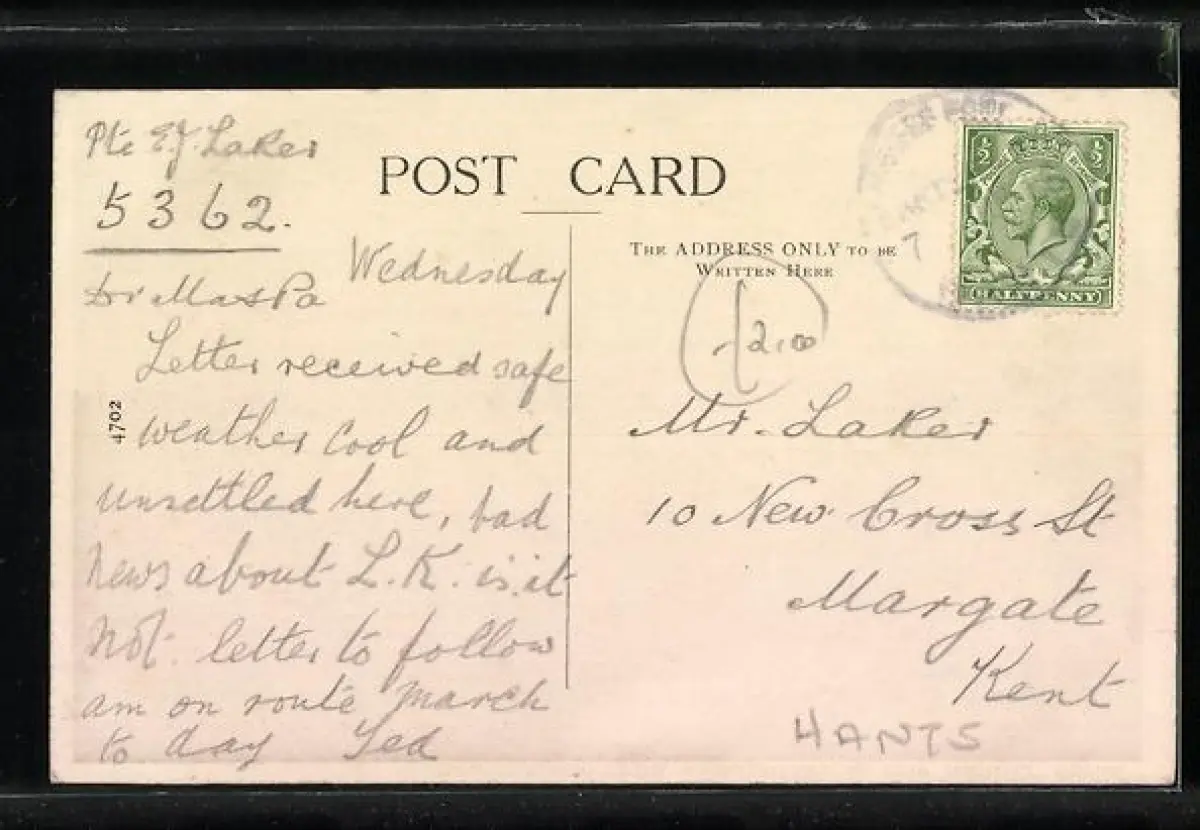 Pte E.J. Laker
5362.
Wednesday
Dr Ma & Pa
Letter received safe
weather cool and
unsettled here, bad
news about L.K. is it
not. letter to follow
am on route march
to day Ted
4702
POST CARD
THE ADDRESS ONLY TO BE
WRITTEN HERE
½ ½
HALFPENNY
7
2.00
Mr. Laker
10 New Cross St
Margate
Kent
HANTS